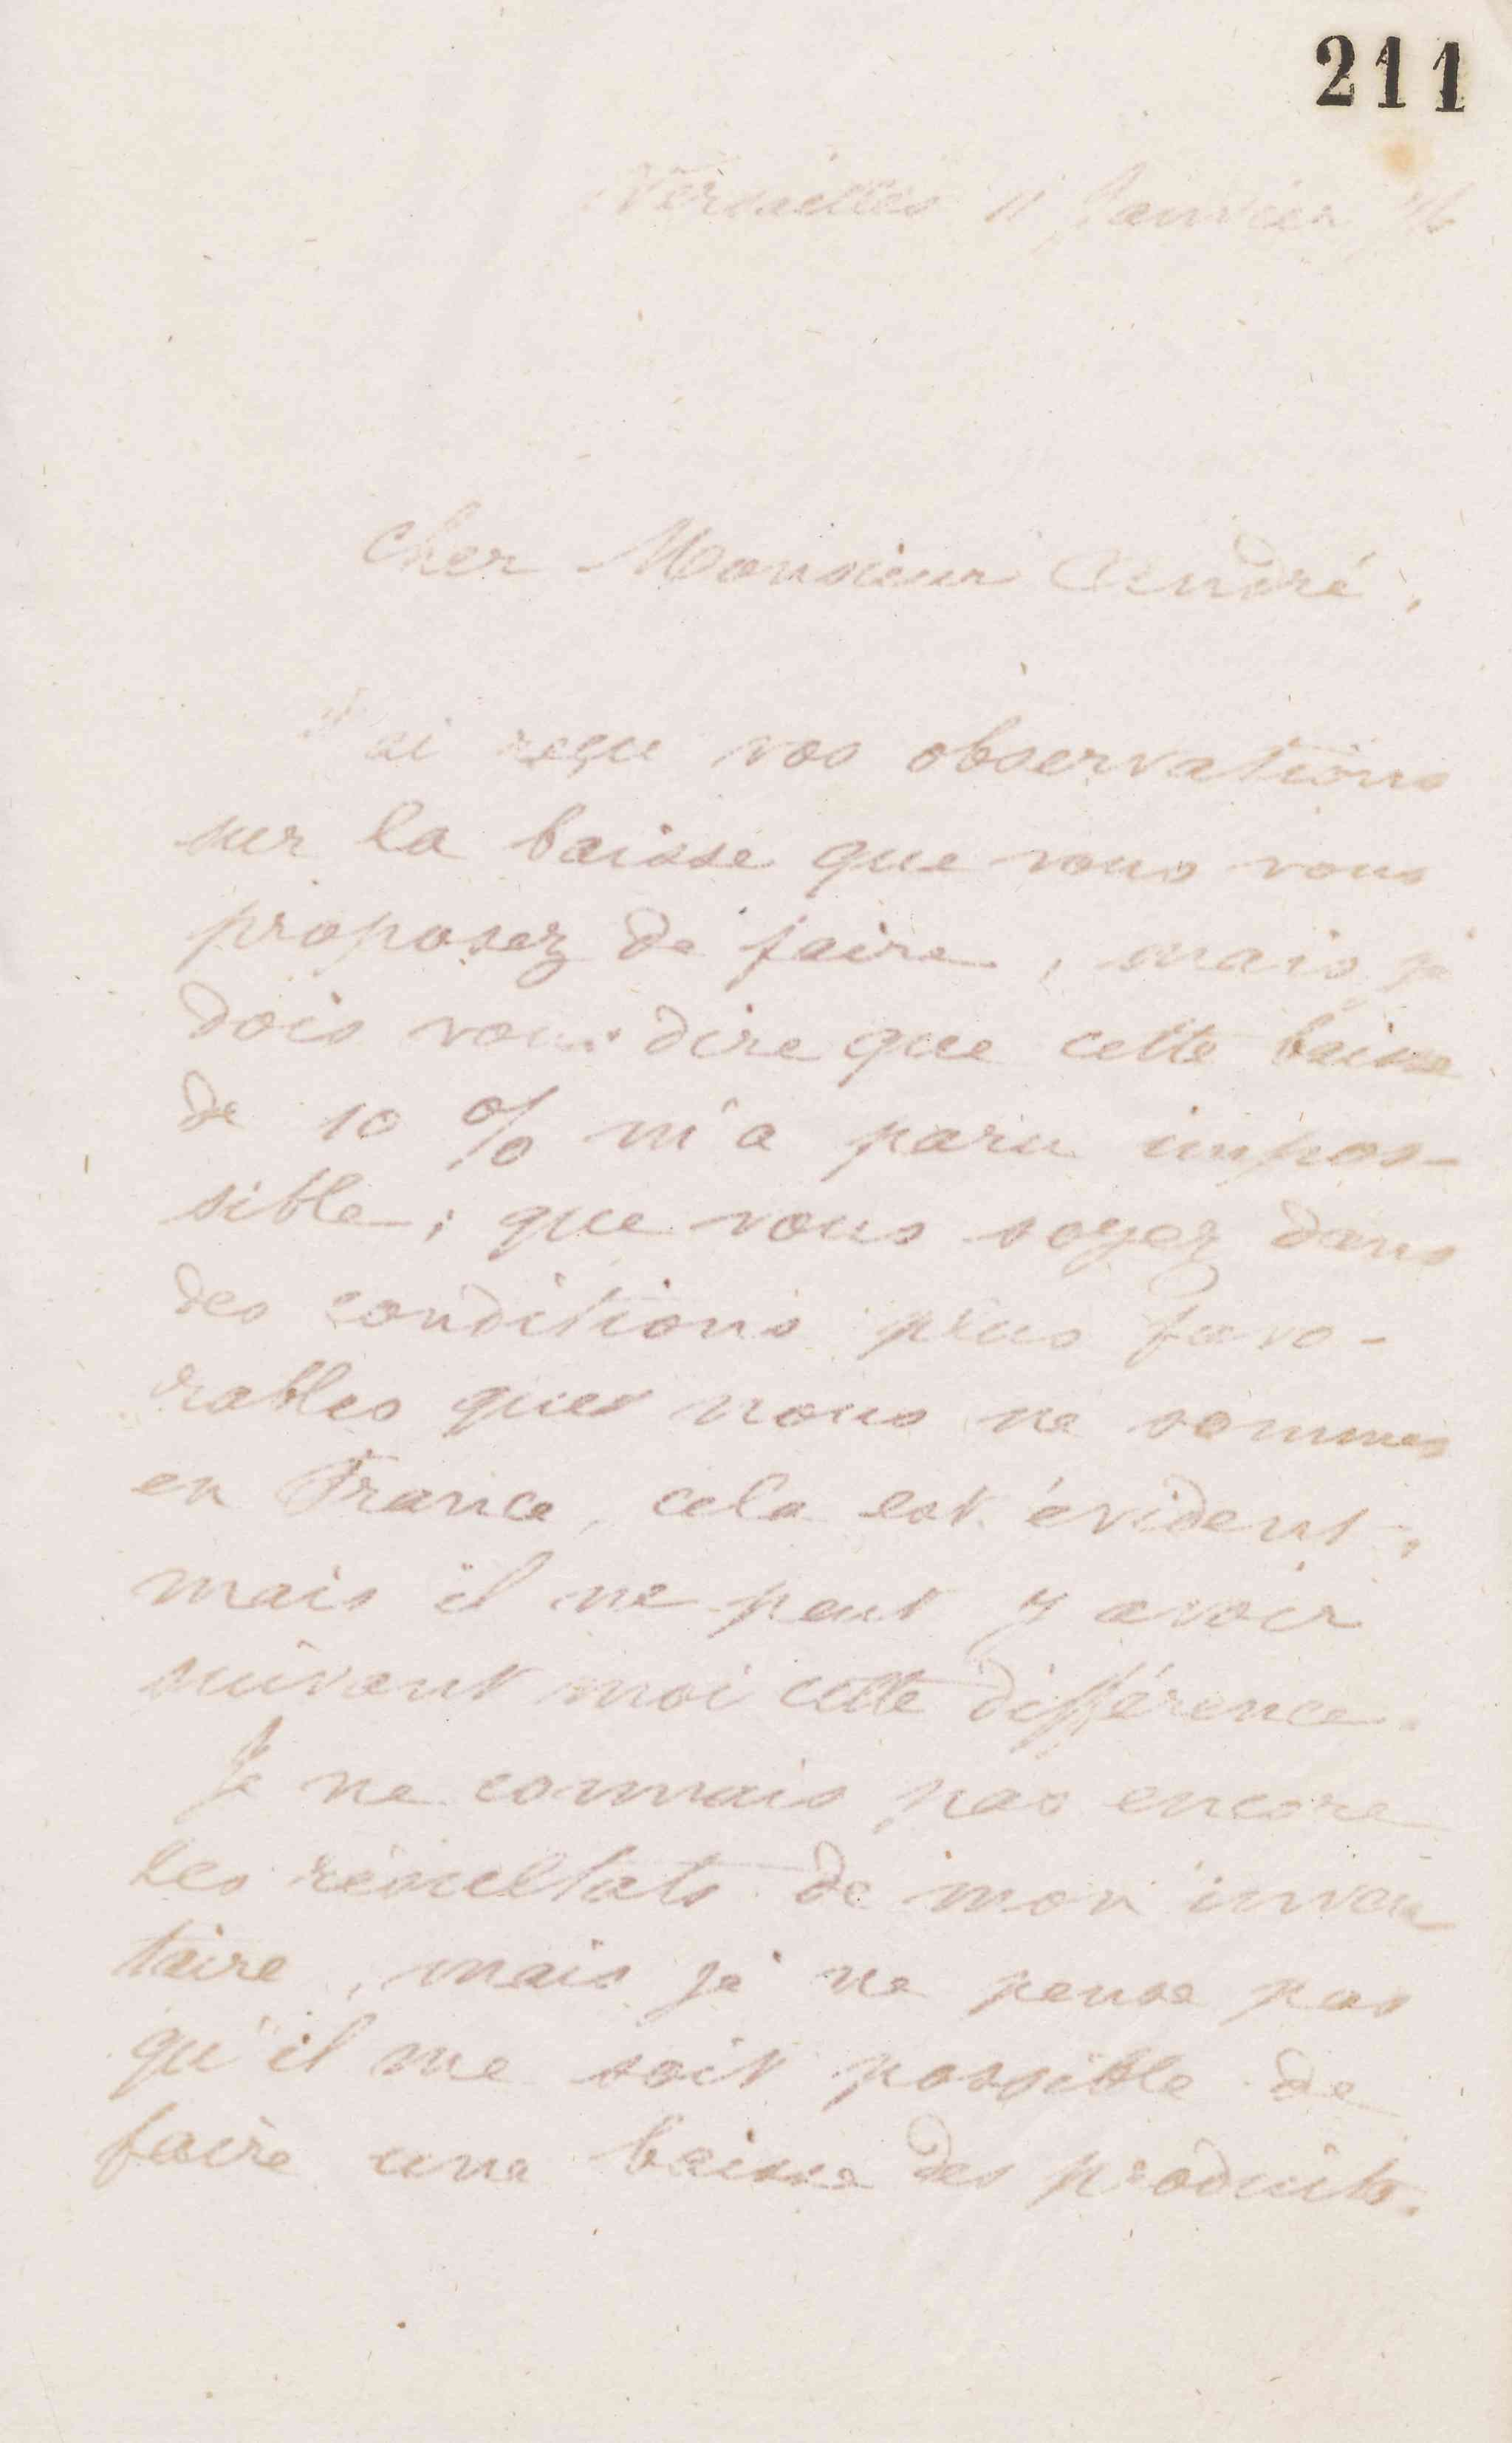 211
Versailles 11 Janvier 76
Cher Monsieur André,
J'ai reçu vos observations
sur la baisse que vous vous
proposez de faire, mais je
dois vous dire que cette baisse
de 10 % m'a paru impos-
sible; que vous soyez dans
des conditions plus favo-
rables que nous ne sommes
en France, cela est évident,
mais il ne peut y avoir
suivant moi cette différence.
Je ne connais pas encore
les résultats de mon inven
taire, mais je ne pense pas
qu'il me soit possible de
faire une baisse des produits.